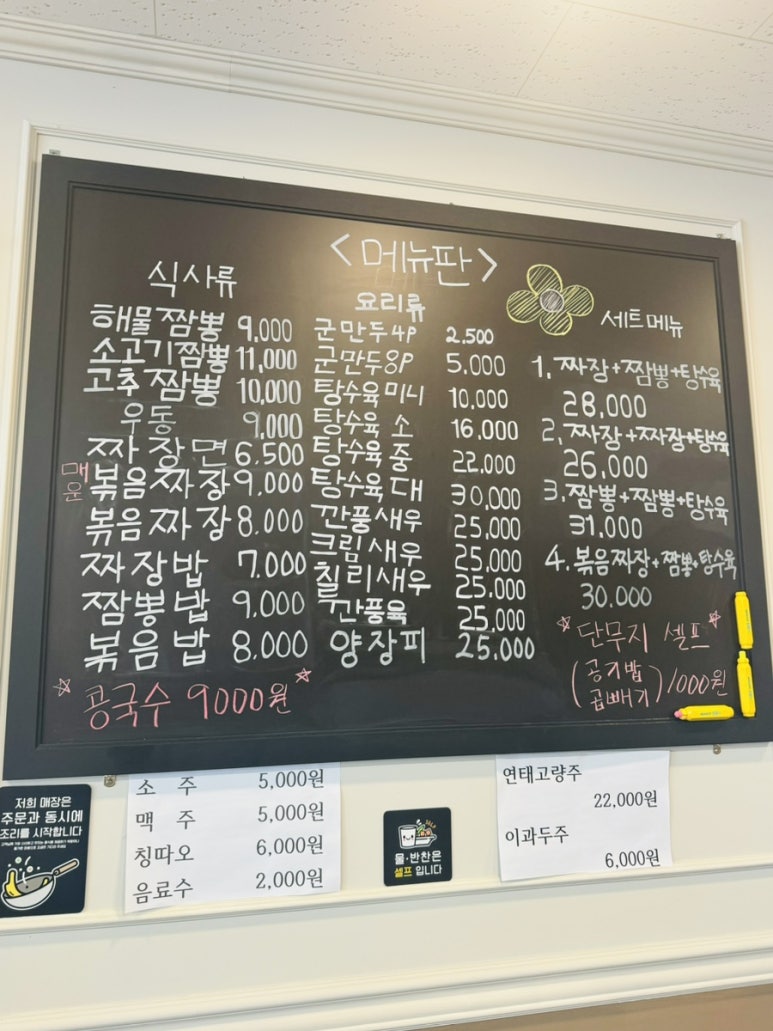 <메뉴판>
식사류
해물짬뽕 9,000
소고기짬뽕 11,000
고추짬뽕 10,000
우동 9,000
짜장면 6,500
매운 볶음짜장 9,000
볶음짜장 8,000
짜장밥 7,000
짬뽕밥 9,000
볶음밥 8,000
☆콩국수 9000원☆
요리류
군만두4P 2,500
군만두8P 5,000
탕수육미니 10,000
탕수육 소 16,000
탕수육 중 22,000
탕수육 대 30,000
깐풍새우 25,000
크림새우 25,000
칠리새우 25,000
깐풍육 25,000
양장피 25,000
세트메뉴
1. 짜장+짬뽕+탕수육
28,000
2. 짜장+짜장+탕수육
26,000
3. 짬뽕+짬뽕+탕수육
31,000
4. 볶음짜장+짬뽕+탕수육
30,000
*단무지 셀프*
(공기밥
곱빼기) 1000원
저희 매장은
주문과 동시에
조리를 시작합니다
소 주 5,000원
맥 주 5,000원
칭따오 6,000원
음료수 2,000원
SELF
물·반찬은
셀프입니다
연태고량주
22,000원
이과두주
6,000원